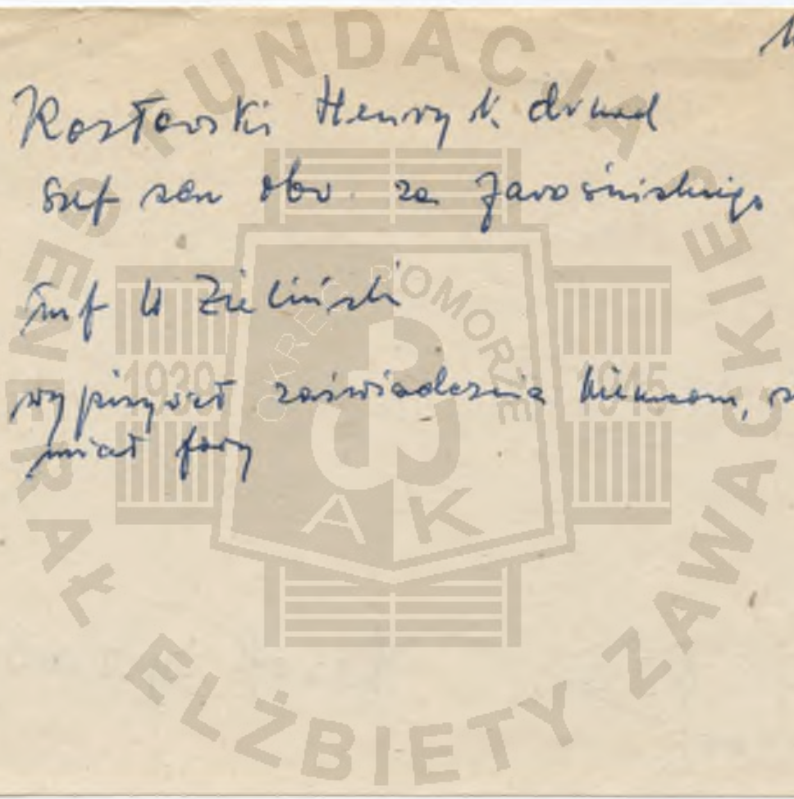 Henryk
szef san obw. za Jarosińskiego
inf U Zieliński
wypisywał zaświadczenia Niemcom,
miał fory
FUNDACJA GENERAŁ ELŻBIETY ZAWACKIEJ
OKRĘG POMORZE
1939 1945
AK